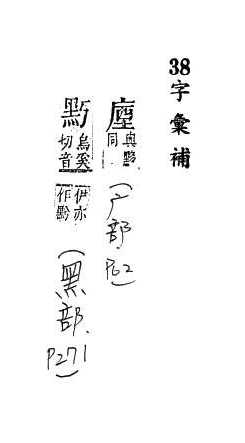 38字彙補
與黟
同
(广部
P62)
烏奚
切音
伊亦
作
(黑部.
P271)